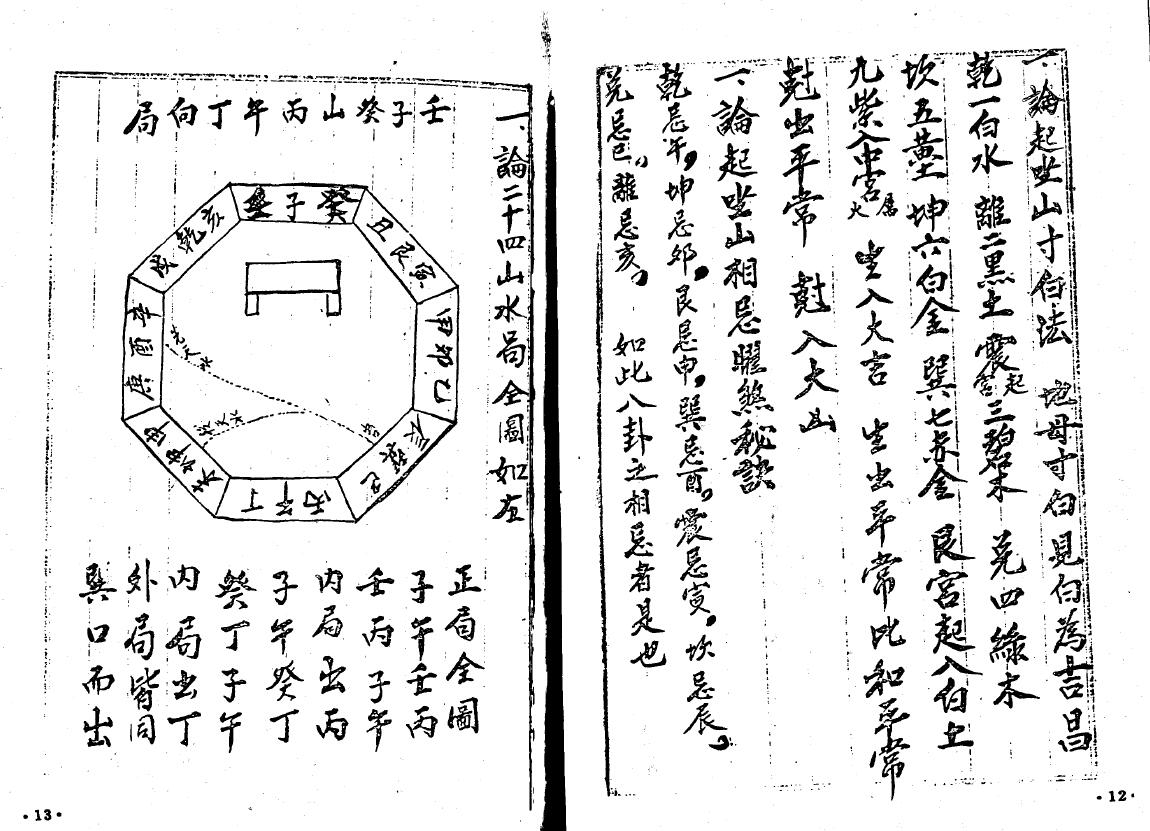 一、論起坐山寸白法　地母寸白見白為吉昌
乾一白水　離二黑土　震宮起三碧木　兑四綠木
坎五黃土　坤六白金　巽七赤金　艮宮起八白土
九紫入中宮屬火　坐入大吉　生出平常比和平常
尅出平常　尅入大凶
一、論起坐山相忌曜煞秘訣
乾忌午，坤忌卯，艮忌申，巽忌酉，震忌寅，坎忌辰，
兑忌巳，離忌亥，　如此八卦之相忌者是也
·12·
一、論二十四山水局全圖如左
壬子癸山丙午丁向局
壬子癸
丑艮寅
甲卯乙
辰巽巳
丙午丁
未坤申
庚酉辛
戌乾亥
正局全圖
子午壬丙
壬丙子午
内局出丙
子午癸丁
癸丁子午
内局出丁
外局皆同
巽口而出
·13·